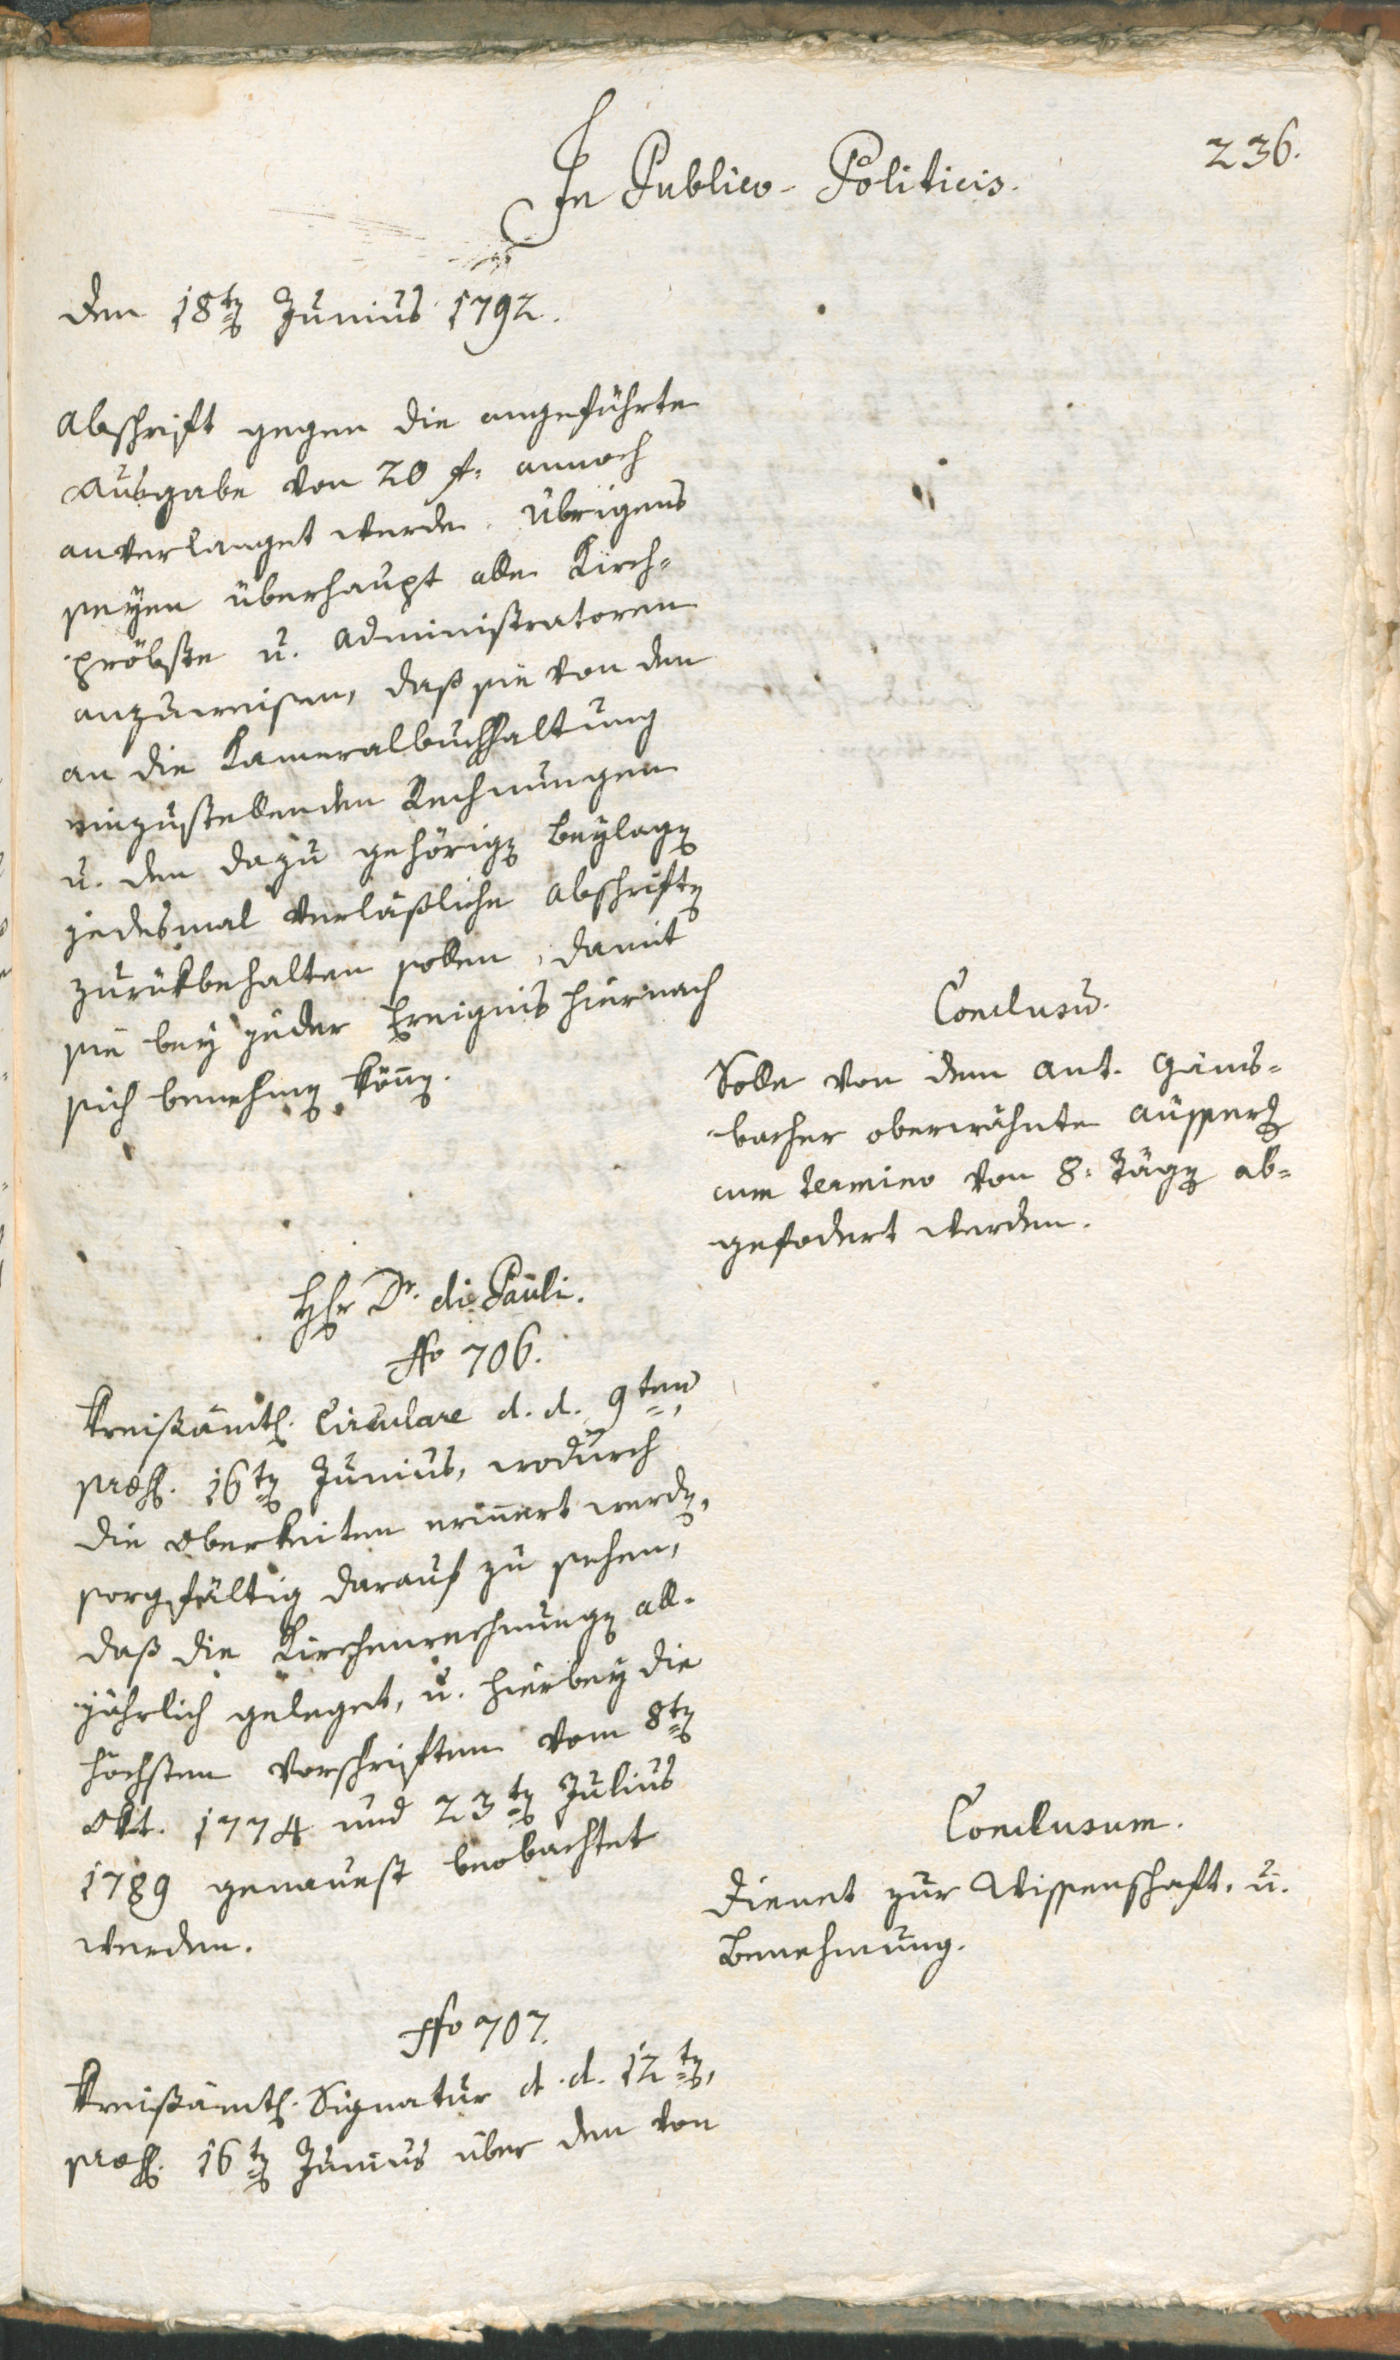 236.
In Publico-Politicis.
den 18ten Junius 1792.
Abschrift gegen die angeführte
Ausgabe von 20 f: annoch
anverlanget werde. Übrigens
seyen überhaupt alle Kirch-
pröbste u. Administratoren
anzuweisen, daß sie von den
an die Kameralbuchhaltung
einzustellenden Rechnungen
u. den dazu gehörigen Beylagen
jedesmal verläßliche Abschriften
zurükbehalten sollen, damit
sie bey jeder Ereignis hiernach
sich benehmen können.
Conclusum.
Solle von dem Ant. Gäns-
bacher oberwähnte
cum termino von 8: Tägen ab-
gefodert werden.
Hhr Dr. di Pauli.
No 706.
Kreisämtl. Circulare d. d. 9ten,
præs. 16ten Junius, wodurch
die Oberkeiten erinnert werden,
sorgfältig darauf zu sehen,
daß die Kirchenrechnungen all-
jährlich geleget, u. hierbey die
höchsten Vorschriften vom 8ten
Okt. 1774 und 23ten Julius
1789 genauest beobachtet
werden.
Conclusum.
Dienet zur Wissenschaft, u.
Benehmung.
No 707.
Kreisämtl. Signatur d. d. 12ten,
præs. 16ten Junius über den von